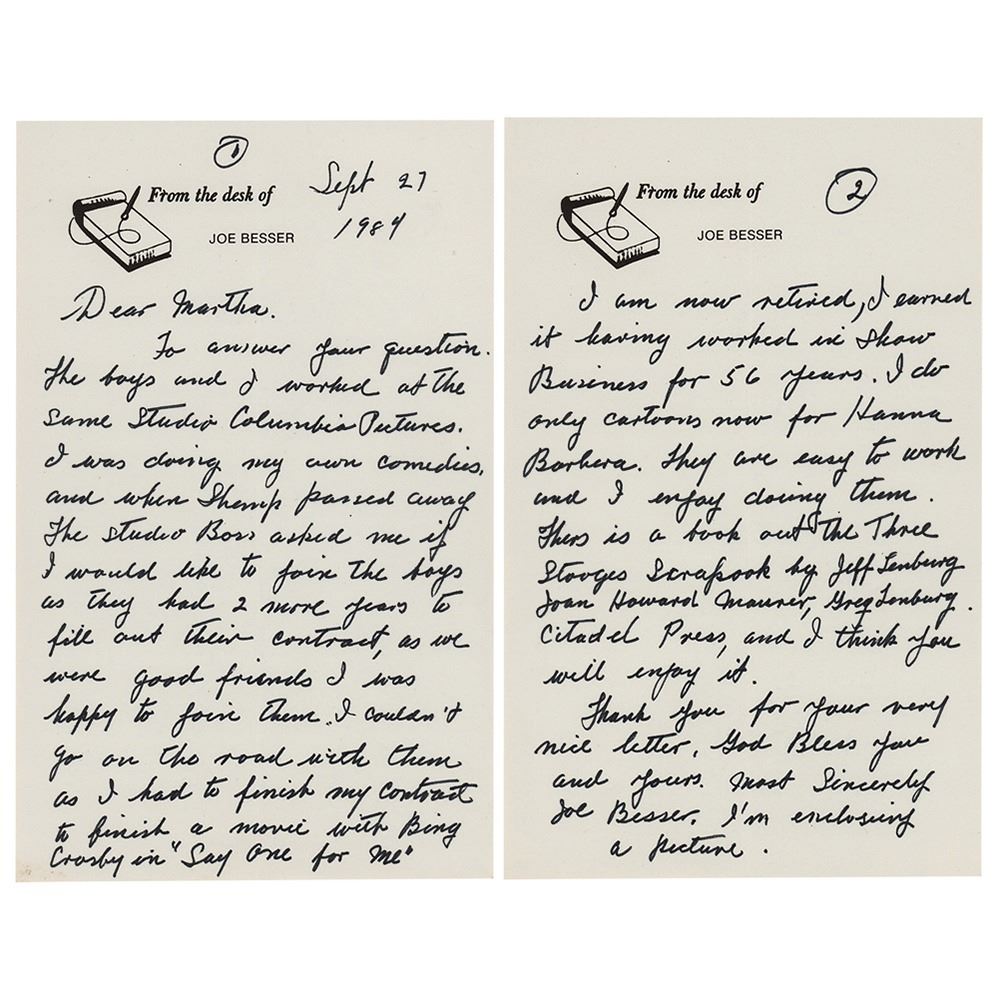 1
From the desk of
Sept 27
1984
JOE BESSER
Dear Martha.
To answer your question.
The boys and I worked at the
same Studio Columbia Pictures.
I was doing my own comedies,
and when Shemp passed away
The studio Boss asked me if
I would like to join the boys
as they had 2 more years to
fill out their contract, as we
were good friends I was
happy to join them. I couldn't
go on the road with them
as I had to finish my contract
to finish a movie with Bing
Crosby in "Say One for Me"
From the desk of
2
JOE BESSER
I am now retired, I earned
it having worked in Show
Business for 56 years. I do
only cartoons now for Hanna
Barbera. They are easy to work
and I enjoy doing them.
Thers is a book out The Three
Stooges Scrapbook by Jeff Lenburg
Joan Howard Maurer, Greg Lenburg.
Citadel Press, and I think you
will enjoy it.
Thank you for your very
nice letter, God Bless you
and yours. Most Sincerely
Joe Besser. I'm enclosing
a picture.